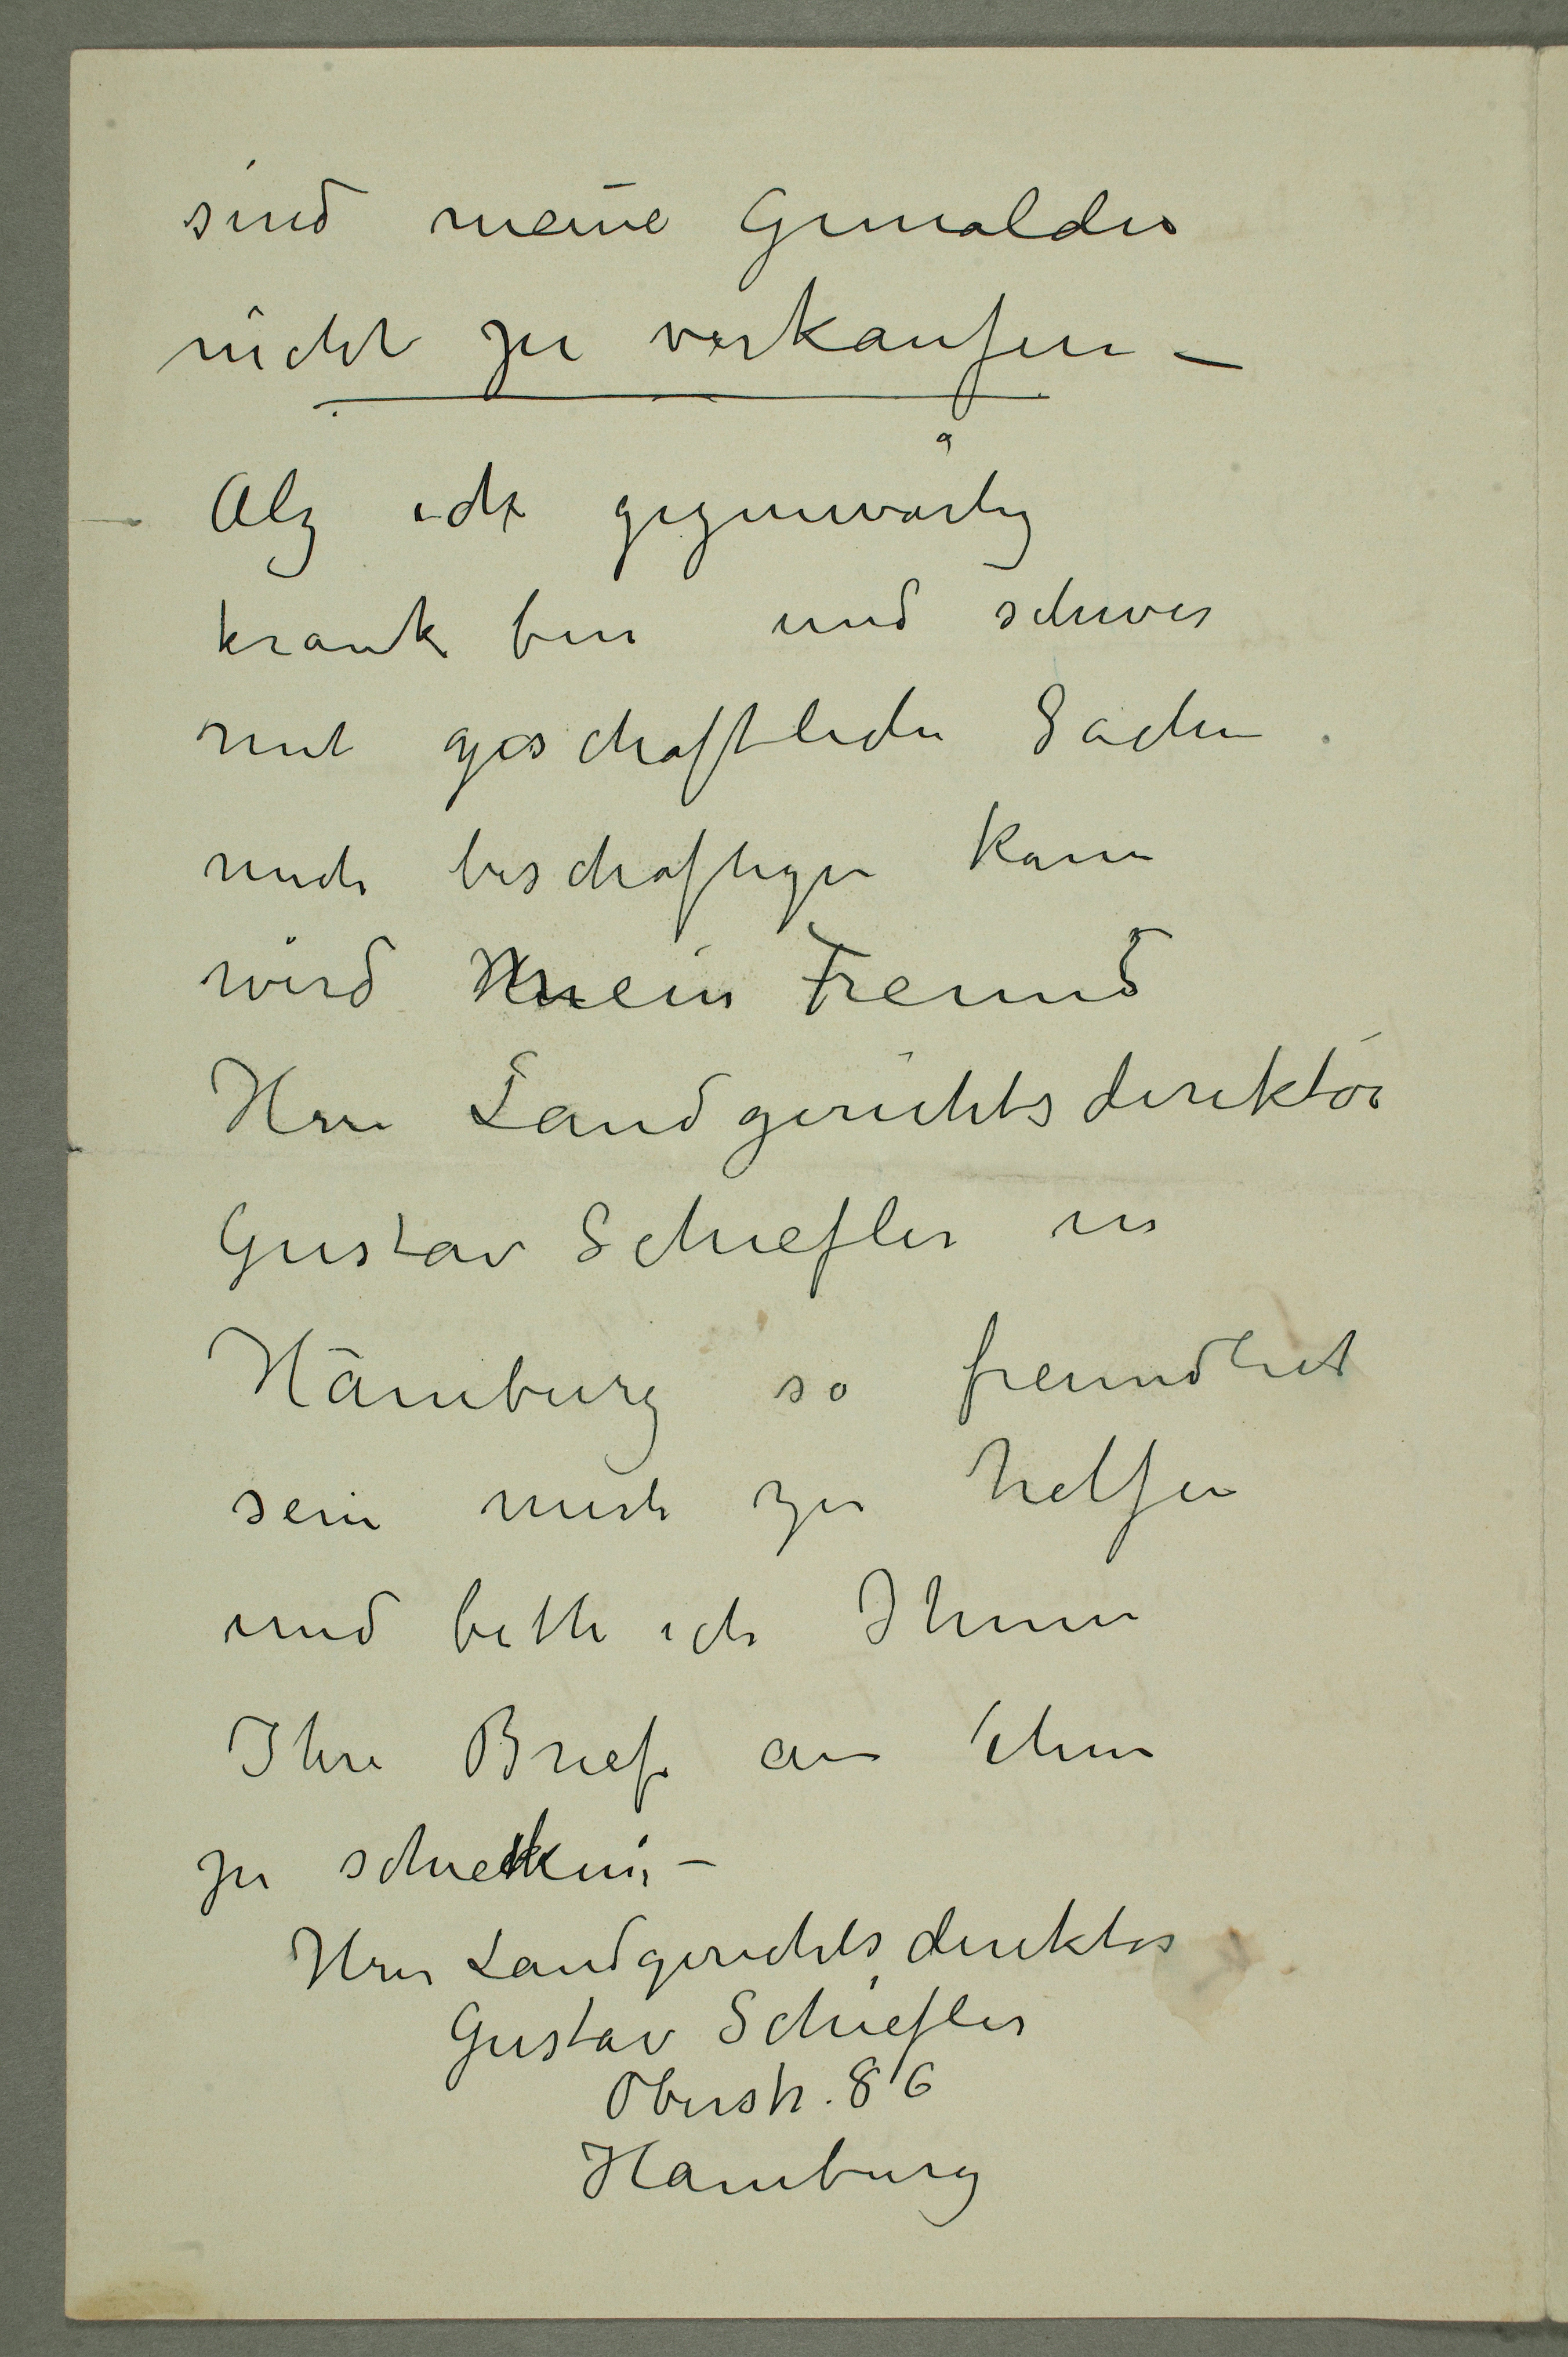 sind meine Gemalder
nicht zu verkaufen –
Alz ich gegenwärtig
krank bin und schwer
mit geschaftliche Sachen
mich beschaftigen kann
wird mein Freund
Herr Landgerichtsdirektör
Gustav Schiefler in
Hamburg so freundlich
sein mich zu helfen
und bitte ich Ihnen
Ihre Briefe an ihm
zu schicken –
Herr Landgerichtsdirektor
Gustav Schiefler
Oberstr. 86
Hamburg